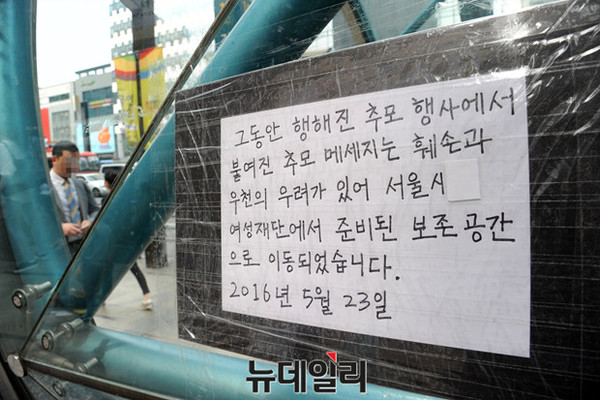 그동안 행해진 추모 행사에서
붙여진 추모 메세지는 훼손과
우천의 우려가 있어 서울시
여성재단에서 준비된 보존공간
으로 이동되었습니다.
2016년 5월 23일
뉴데일리